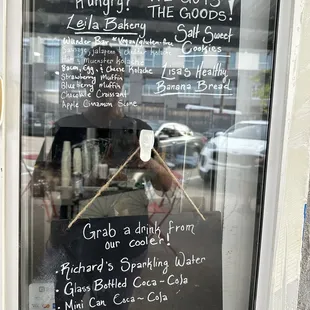 Hungry?
THE GOODS!
Leila Bakery
Salt Sweet
Cookies
Wander Bar * Vegan/gluten-free
Sausage, Jalapeño
Kolache
Bacon, Egg, & Cheese Kolache
Strawberry Muffin
Blueberry Muffin
Chocolate Croissant
Apple Cinnamon Scone
Lisa's Healthy
Banana Bread
Grab a drink from
our cooler!
Richard's Sparkling Water
Glass Bottled Coca-Cola
Mini Can Coca-Cola